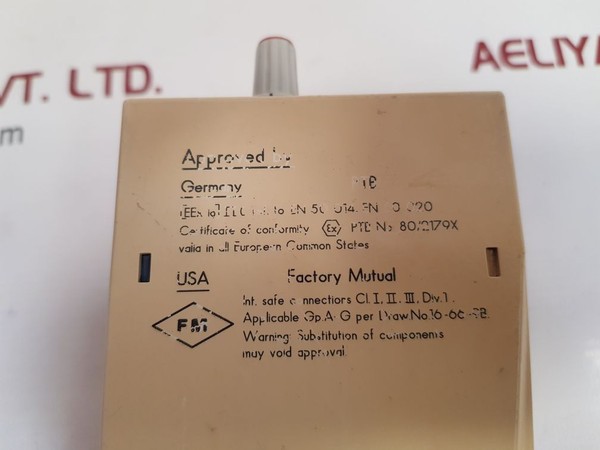 VT. LTD.
AELIYA
om
Approved by
Germany
Certificate of conformity Ex PTB No 80/2179X
valid in all European Common States
USA Factory Mutual
FM
Int. safe connections Cl. I, II, III, Div. 1
Applicable Gp. A-G per Draw. No.
Warning: Substitution of components
may void approval